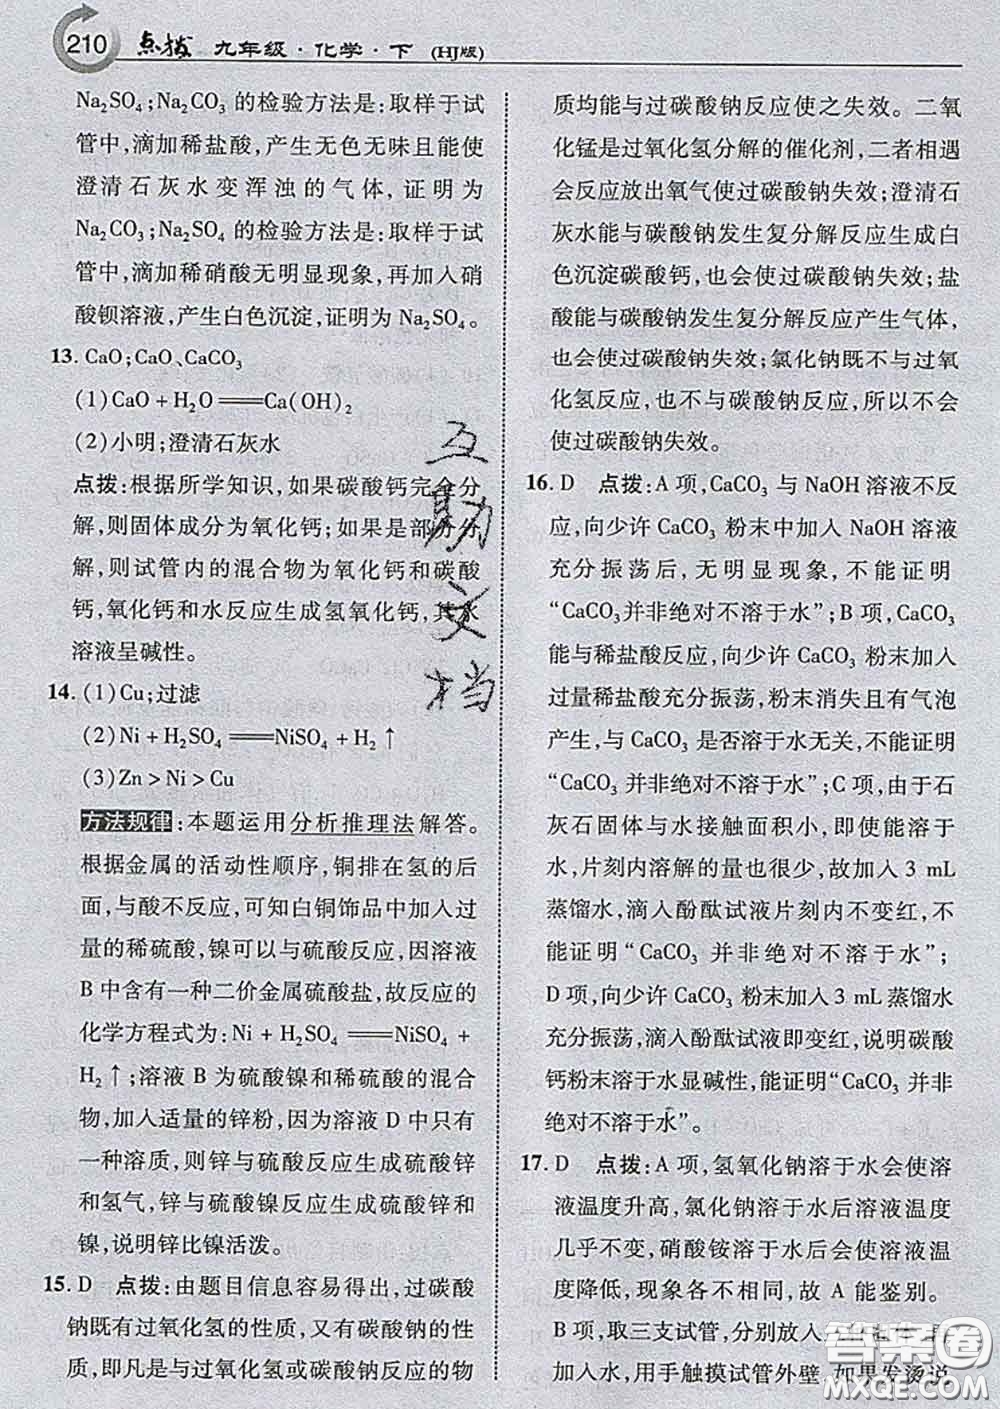 210 点拨 九年级·化学·下 (HJ版)
Na₂SO₄;Na₂CO₃ 的检验方法是:取样于试
管中,滴加稀盐酸,产生无色无味且能使
澄清石灰水变浑浊的气体,证明为
Na₂CO₃;Na₂SO₄ 的检验方法是:取样于试
管中,滴加稀硝酸无明显现象,再加入硝
酸钡溶液,产生白色沉淀,证明为 Na₂SO₄。
13. CaO;CaO、CaCO₃
(1)CaO + H₂O ══ Ca(OH)₂
(2)小明;澄清石灰水
点拨:根据所学知识,如果碳酸钙完全分
解,则固体成分为氧化钙;如果是部分分
解,则试管内的混合物为氧化钙和碳酸
钙,氧化钙和水反应生成氢氧化钙,其水
溶液呈碱性。
14. (1)Cu;过滤
(2)Ni + H₂SO₄ ══ NiSO₄ + H₂↑
(3)Zn > Ni > Cu
方法规律:本题运用分析推理法解答。
根据金属的活动性顺序,铜排在氢的后
面,与酸不反应,可知白铜饰品中加入过
量的稀硫酸,镍可以与硫酸反应,因溶液
B 中含有一种二价金属硫酸盐,故反应的
化学方程式为: Ni + H₂SO₄ ══ NiSO₄ +
H₂↑;溶液 B 为硫酸镍和稀硫酸的混合
物,加入适量的锌粉,因为溶液 D 中只有
一种溶质,则锌与硫酸反应生成硫酸锌
和氢气,锌与硫酸镍反应生成硫酸锌和
镍,说明锌比镍活泼。
15. D 点拨:由题目信息容易得出,过碳酸
钠既有过氧化氢的性质,又有碳酸钠的性
质,即凡是与过氧化氢或碳酸钠反应的物
质均能与过碳酸钠反应使之失效。二氧
化锰是过氧化氢分解的催化剂,二者相遇
会反应放出氧气使过碳酸钠失效;澄清石
灰水能与碳酸钠发生复分解反应生成白
色沉淀碳酸钙,也会使过碳酸钠失效;盐
酸能与碳酸钠发生复分解反应产生气体,
也会使过碳酸钠失效;氯化钠既不与过氧
化氢反应,也不与碳酸钠反应,所以不会
使过碳酸钠失效。
16. D 点拨:A 项,CaCO₃ 与 NaOH 溶液不反
应,向少许 CaCO₃ 粉末中加入 NaOH 溶液
充分振荡后,无明显现象,不能证明
“CaCO₃并非绝对不溶于水”;B 项,CaCO₃
能与稀盐酸反应,向少许 CaCO₃ 粉末加入
过量稀盐酸充分振荡,粉末消失且有气泡
产生,与 CaCO₃ 是否溶于水无关,不能证明
“CaCO₃ 并非绝对不溶于水”;C 项,由于石
灰石固体与水接触面积小,即使能溶于
水,片刻内溶解的量也很少,故加入 3 mL
蒸馏水,滴入酚酞试液片刻内不变红,不
能证明“CaCO₃ 并非绝对不溶于水”;
D 项,向少许 CaCO₃ 粉末加入 3 mL 蒸馏水
充分振荡,滴入酚酞试液即变红,说明碳酸
钙粉末溶于水显碱性,能证明“CaCO₃ 并非
绝对不溶于水”。
17. D 点拨:A 项,氢氧化钠溶于水会使溶
液温度升高,氯化钠溶于水后溶液温度
几乎不变,硝酸铵溶于水会使溶液温
度降低,现象各不相同,故 A 能鉴别。
B 项,取三支试管,分别放入
加入水,用手触摸试管外壁,如果发烫说
互助文档
答案圈
MXQE.COM